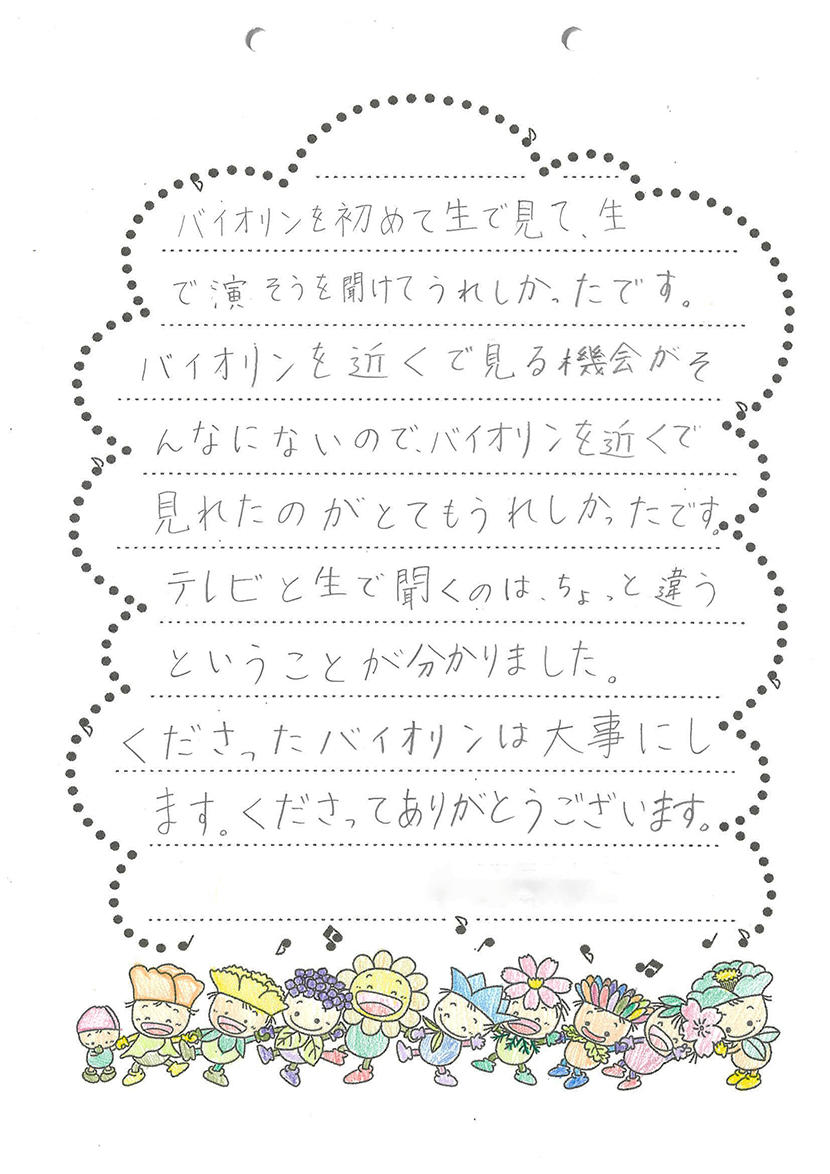 バイオリンを初めて生で見て、生
で演そうを聞けてうれしかったです。
バイオリンを近くで見る機会がそ
んなにないので、バイオリンを近くで
見れたのがとてもうれしかったです。
テレビと生で聞くのは、ちょっと違う
ということが分かりました。
くださったバイオリンは大事にし
ます。くださってありがとうございます。